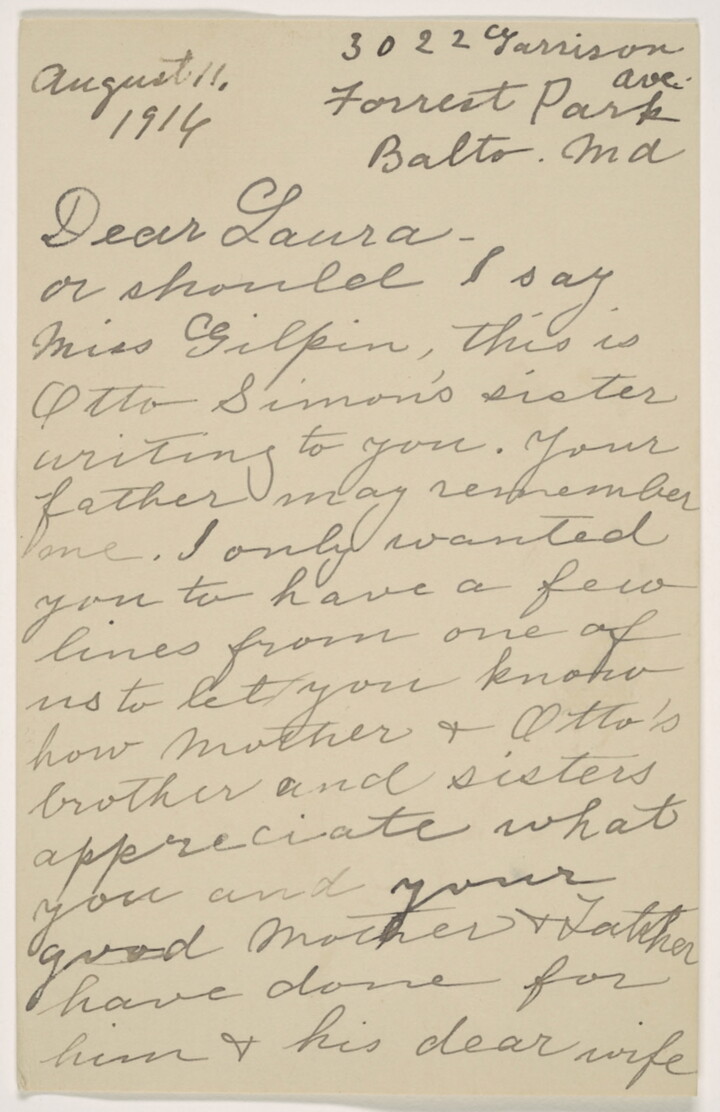 3022 Garrison
Ave.
August 11.
1916
Forrest Park
Balto. Md
Dear Laura -
or should I say
Miss Gilpin, this is
Otto Simon's sister
writing to you. Your
father may remember
me. I only wanted
you to have a few
lines from one of
us to let you know
how Mother & Otto's
brother and sisters
appreciate what
you and your
good Mother & Father
have done for
him & his dear wife